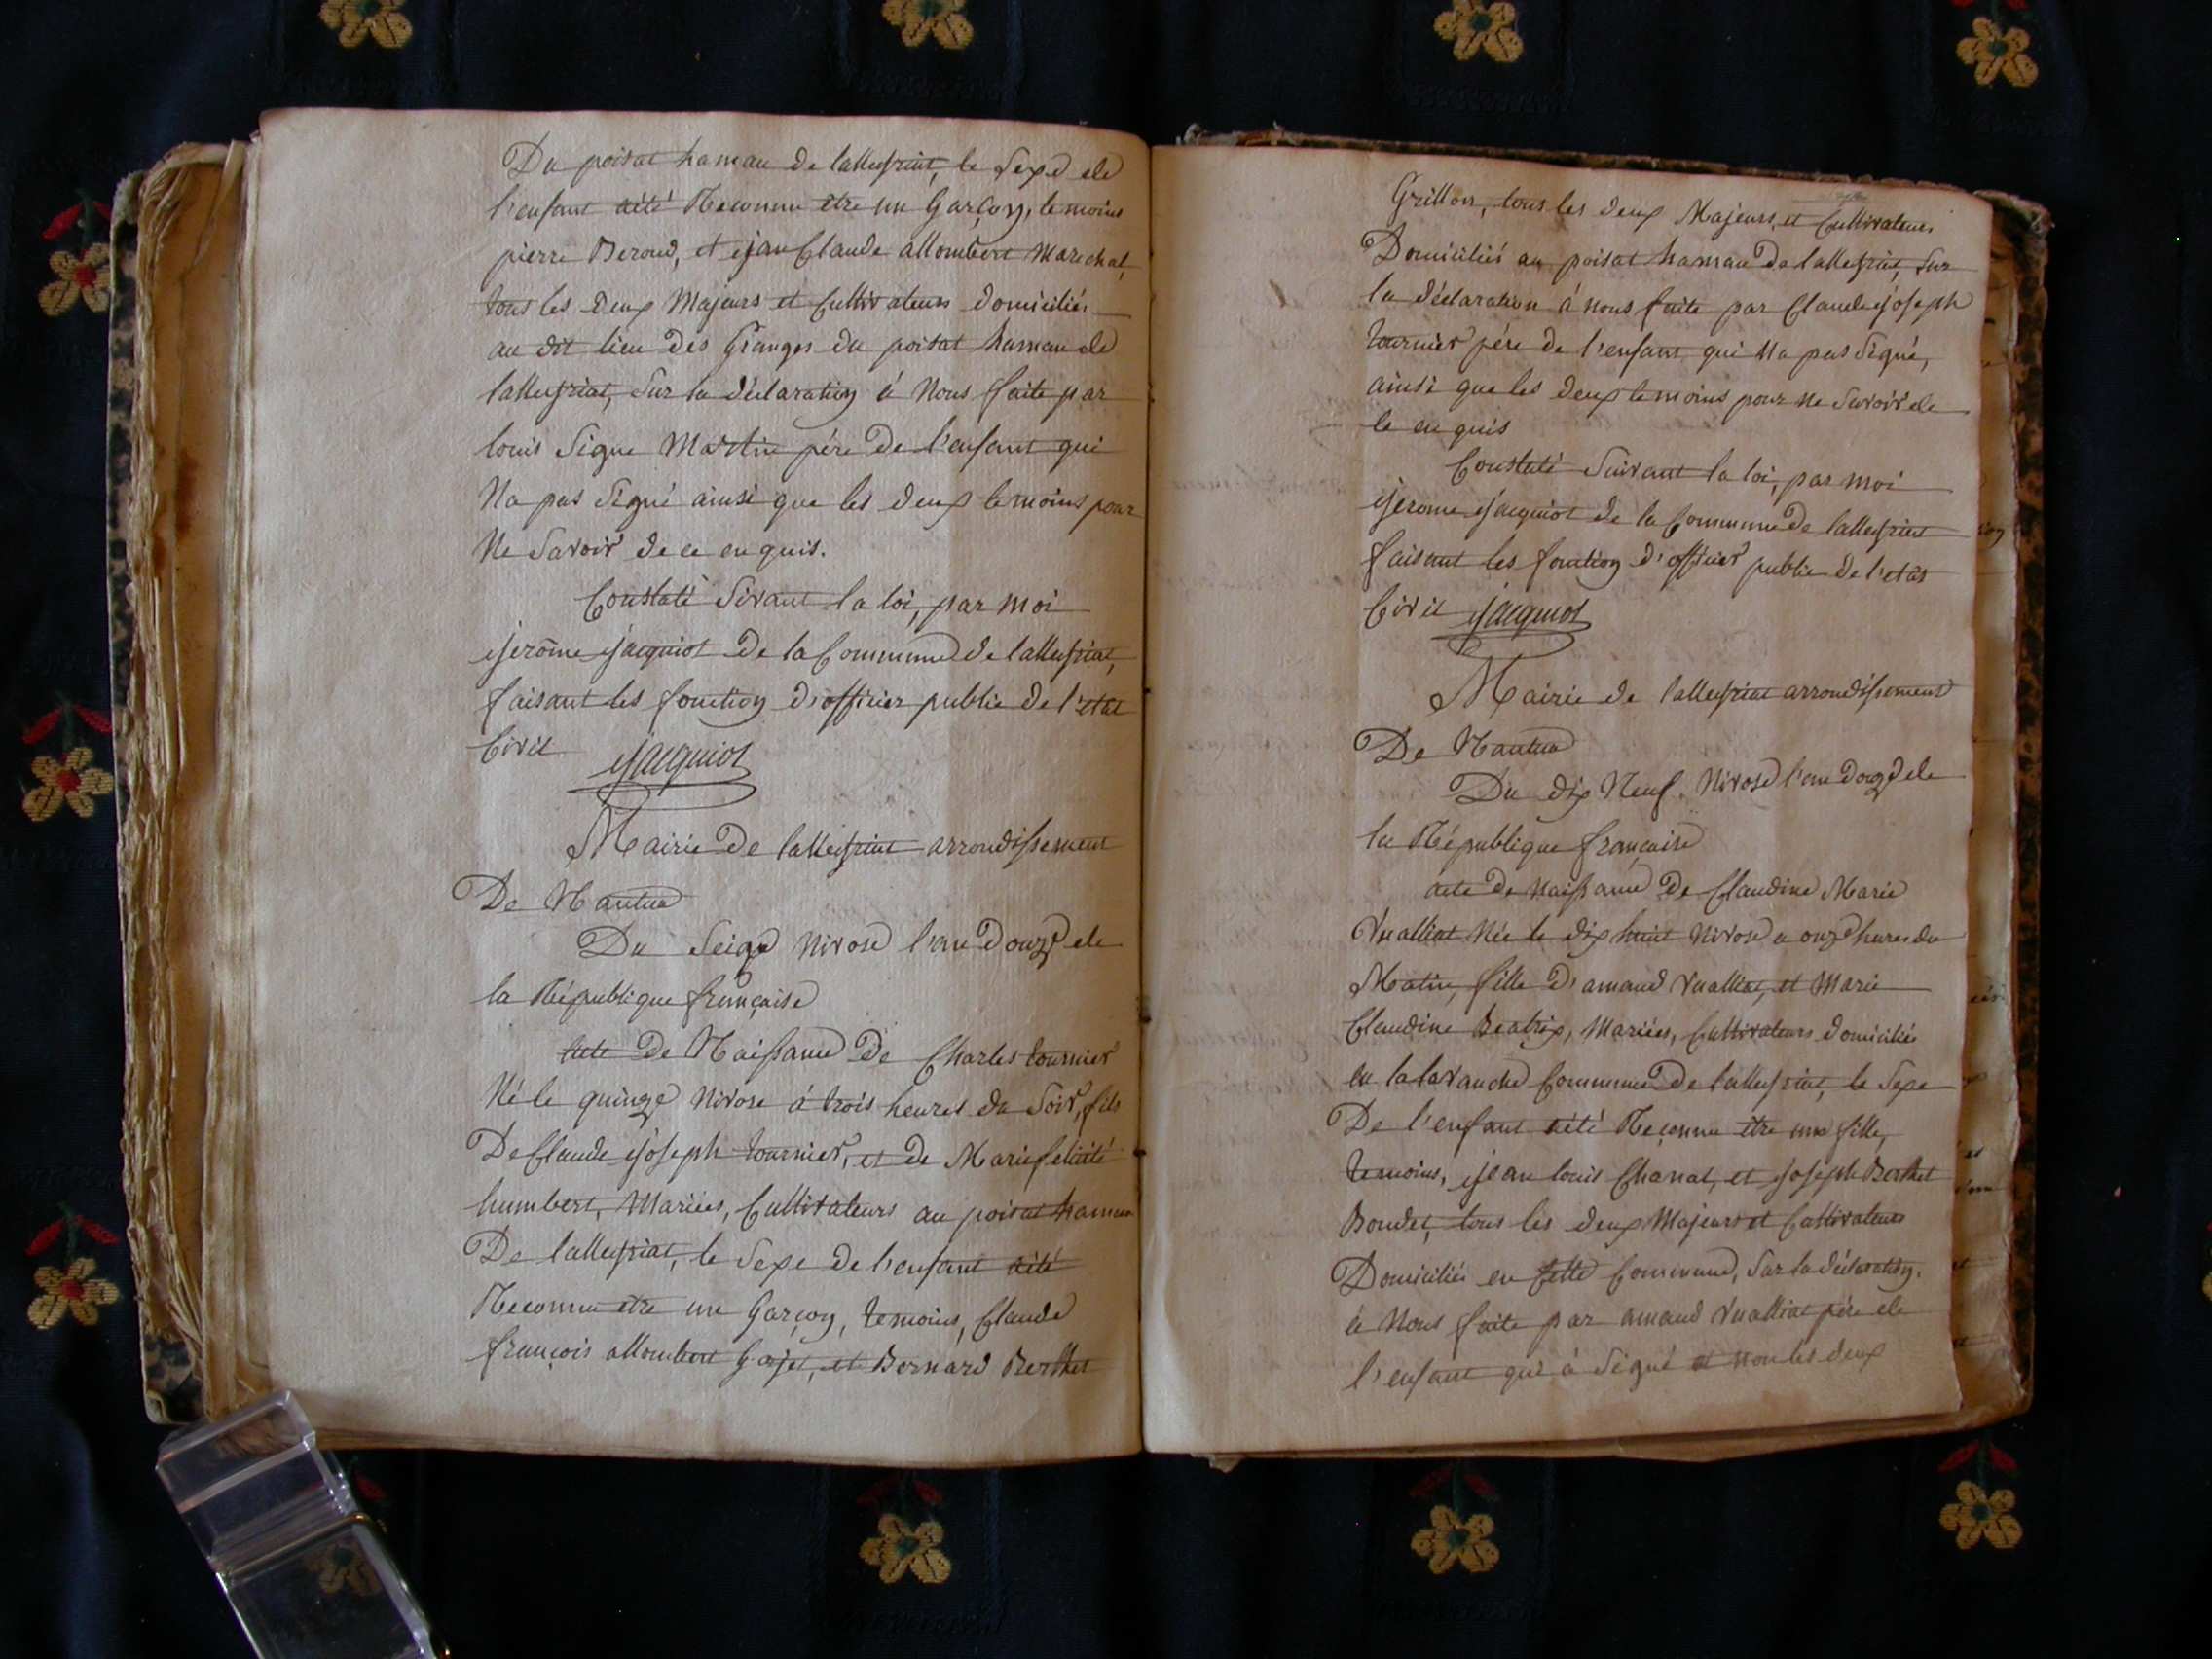 Du poisat hamau de lalleyriat, le Sexe de
l'enfant aété Reconnu être un Garçon, temoins
pierre Beroud, et jean Claude allombert Marechal,
tous les deux Majeurs et Cultivateurs domiciliés
au dit lieu des Granges du poisat hamau de
lalleyriat, Sur la déclaration à Nous faite par
louis Sigue Martin pére De l'enfant qui
Na pas Signé ainsi que les deux temoins pour
Ne Savoir de ce en quis.
Constaté Sivant la loi, par moi
jerôme jacquiot De la Commune de lalleyriat,
faisant les fonction d'officier public de l'etat
Civil jacquiot
Mairie De lalleyriat arrondissement
De Nantua
Du Seize Nivose l'an Douze de
la République française
acte De Naissance De Charles tournier
Né le quinze Nivose à trois heures du Soir, fils
De Claude joseph tournier, et de Marie felicité
humbert, Mariées, Cultivateurs au poisat hamau
De lalleyriat, le Sexe de l'enfant aété
Reconnu etre un Garçon, temoins, Claude
françois allombert Gojet, et Bernard Berthet
Grillon, tous les deux Majeurs, et Cultivateurs
Domiciliés au poisat hamau De lalleyriat, Sur
la déclaration à nous faite par Claude joseph
tournier pére de l'enfant qui Na pas Signé,
ainsi que les deux temoins pour Ne Savoir de
le en quis
Constaté Suivant la loi, par moi
jerome jacquiot de la Commune De lalleyriat
faisant les fonction d'officier public de l'etat
Civil jacquiot
Mairie de lalleyriat arrondissement
De Nantua
Du dix Neuf Nivose l'an douze de
la République française
acte De Naissance De Claudine Marie
Vualliat Née le dix huit Nivose a onze heures du
Matin, fille d'amand Vualliat, et Marie
Claudine Beatrix, Mariées, Cultivateurs domiciliés
en lalavanche Commune De lalleyriat, le Sexe
De l'enfant aété Reconnu être une fille,
temoins, jean louis Chanat, et joseph Berthet
Bondet, tous les deux Majeurs et Cultivateurs
Domiciliés en Cette Commune, Sur la déclaration,
à Nous faite par amand Vualliat pére de
l'enfant qui à Signé et non les deux